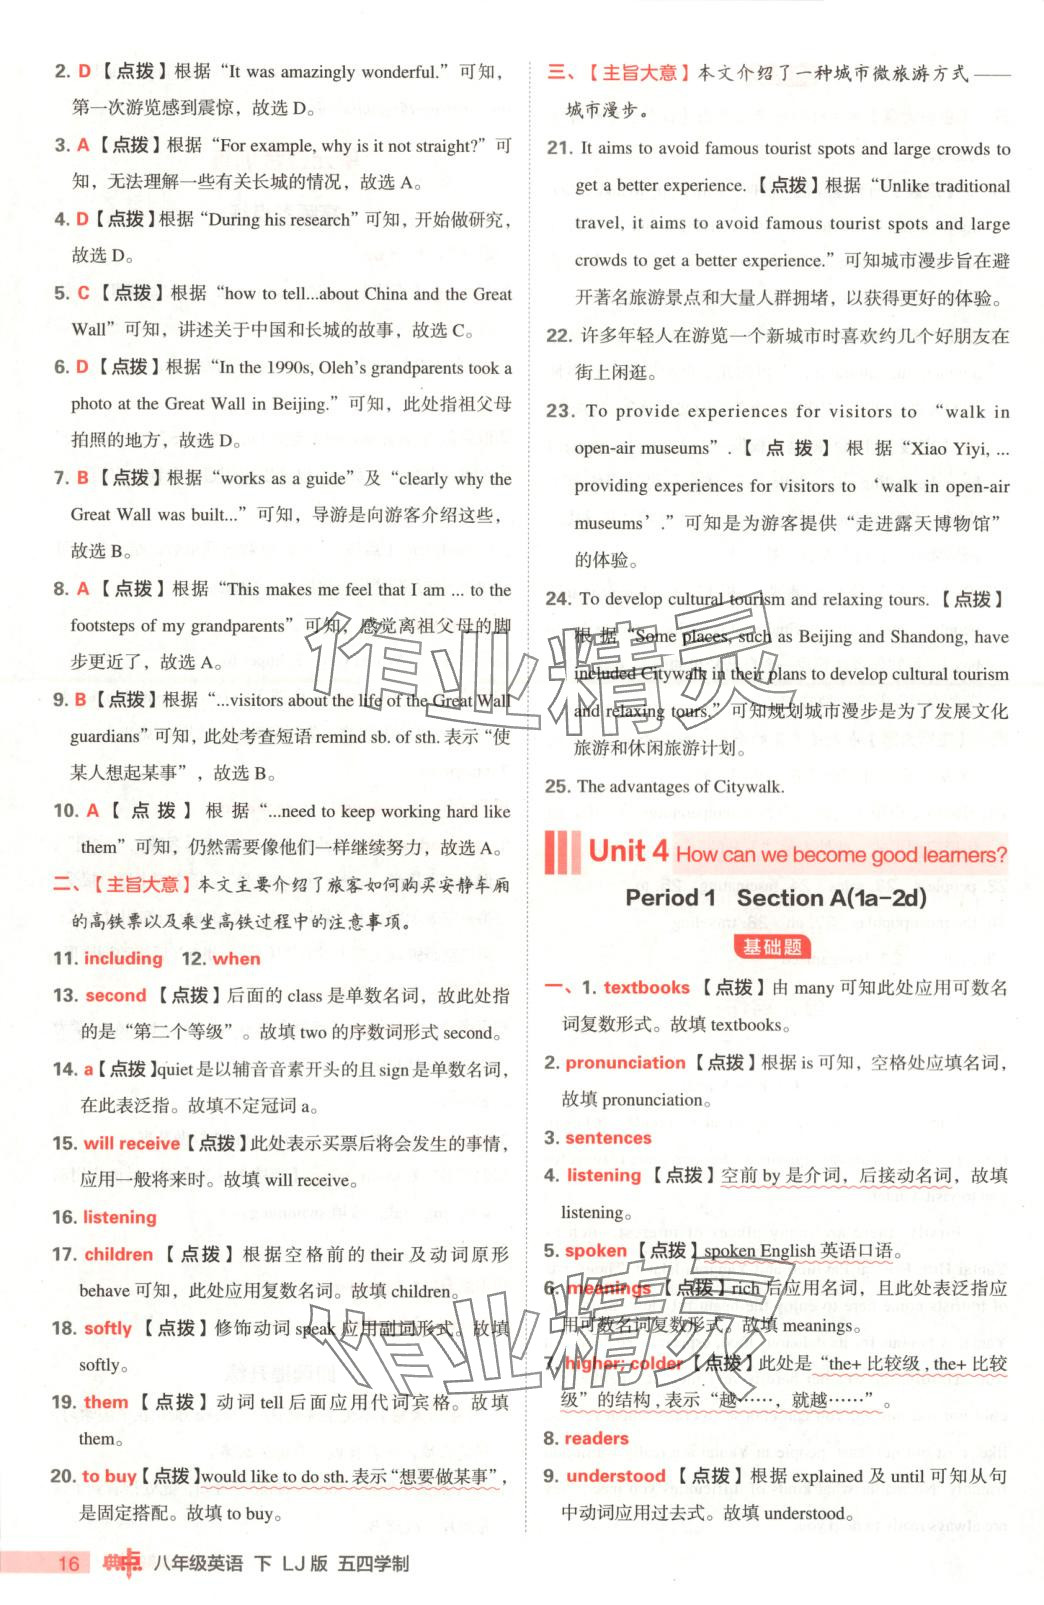 2. D【点拨】根据“It was amazingly wonderful.”可知,
第一次游览感到震惊，故选 D。
3. A【点拨】根据“For example, why is it not straight?”可
知，无法理解一些有关长城的情况，故选 A。
4. D【点拨】根据“During his research”可知，开始做研究，
故选 D。
5. C【点拨】根据“how to tell...about China and the Great
Wall”可知，讲述关于中国和长城的故事，故选 C。
6. D【点拨】根据“In the 1990s, Oleh's grandparents took a
photo at the Great Wall in Beijing.”可知，此处指祖父母
拍照的地方，故选 D。
7. B【点拨】根据“works as a guide”及“clearly why the
Great Wall was built...”可知，导游是向游客介绍这些，
故选 B。
8. A【点拨】根据“This makes me feel that I am ... to the
footsteps of my grandparents”可知，感觉离祖父母的脚
步更近了，故选 A。
9. B【点拨】根据“...visitors about the life of the Great Wall
guardians”可知，此处考查短语 remind sb. of sth. 表示“使
某人想起某事”，故选 B。
10. A【点拨】根据“...need to keep working hard like
them”可知，仍然需要像他们一样继续努力，故选 A。
二、【主旨大意】本文主要介绍了旅客如何购买安静车厢
的高铁票以及乘坐高铁过程中的注意事项。
11. including 12. when
13. second【点拨】后面的 class 是单数名词，故此处指
的是“第二个等级”。故填 two 的序数词形式 second。
14. a【点拨】quiet 是以辅音音素开头的且 sign 是单数名词，
在此表泛指。故填不定冠词 a。
15. will receive【点拨】此处表示买票后将会发生的事情，
应用一般将来时。故填 will receive。
16. listening
17. children【点拨】根据空格前的 their 及动词原形
behave 可知，此处应用复数名词。故填 children。
18. softly【点拨】修饰动词 speak 应用副词形式。故填
softly。
19. them【点拨】动词 tell 后面应用代词宾格。故填
them。
20. to buy【点拨】would like to do sth. 表示“想要做某事”，
是固定搭配。故填 to buy。
三、【主旨大意】本文介绍了一种城市微旅游方式——
城市漫步。
21. It aims to avoid famous tourist spots and large crowds to
get a better experience.【点拨】根据“Unlike traditional
travel, it aims to avoid famous tourist spots and large
crowds to get a better experience.”可知城市漫步旨在避
开著名旅游景点和大量人群拥堵，以获得更好的体验。
22. 许多年轻人在游览一个新城市时喜欢约几个好朋友在
街上闲逛。
23. To provide experiences for visitors to “walk in
open-air museums”.【点拨】根据“Xiao Yiyi, ...
providing experiences for visitors to ‘walk in open-air
museums’.”可知是为游客提供“走进露天博物馆”
的体验。
24. To develop cultural tourism and relaxing tours.【点拨】
根据“Some places, such as Beijing and Shandong, have
included Citywalk in their plans to develop cultural tourism
and relaxing tours,”可知规划城市漫步是为了发展文化
旅游和休闲旅游计划。
25. The advantages of Citywalk.
Unit 4 How can we become good learners?
Period 1 Section A(1a-2d)
基础题
一、1. textbooks【点拨】由 many 可知此处应用可数名
词复数形式。故填 textbooks。
2. pronunciation【点拨】根据 is 可知，空格处应填名词，
故填 pronunciation。
3. sentences
4. listening【点拨】空前 by 是介词，后接动名词，故填
listening。
5. spoken【点拨】spoken English 英语口语。
6. meanings【点拨】rich 后应用名词，且此处表泛指应
用可数名词复数形式。故填 meanings。
7. higher; colder【点拨】此处是“the+ 比较级 , the+ 比较
级”的结构，表示“越……，就越……”。
8. readers
9. understood【点拨】根据 explained 及 until 可知从句
中动词应用过去式。故填 understood。
16 典中点 八年级英语 下 LJ版 五四学制
作业精灵
作业精灵